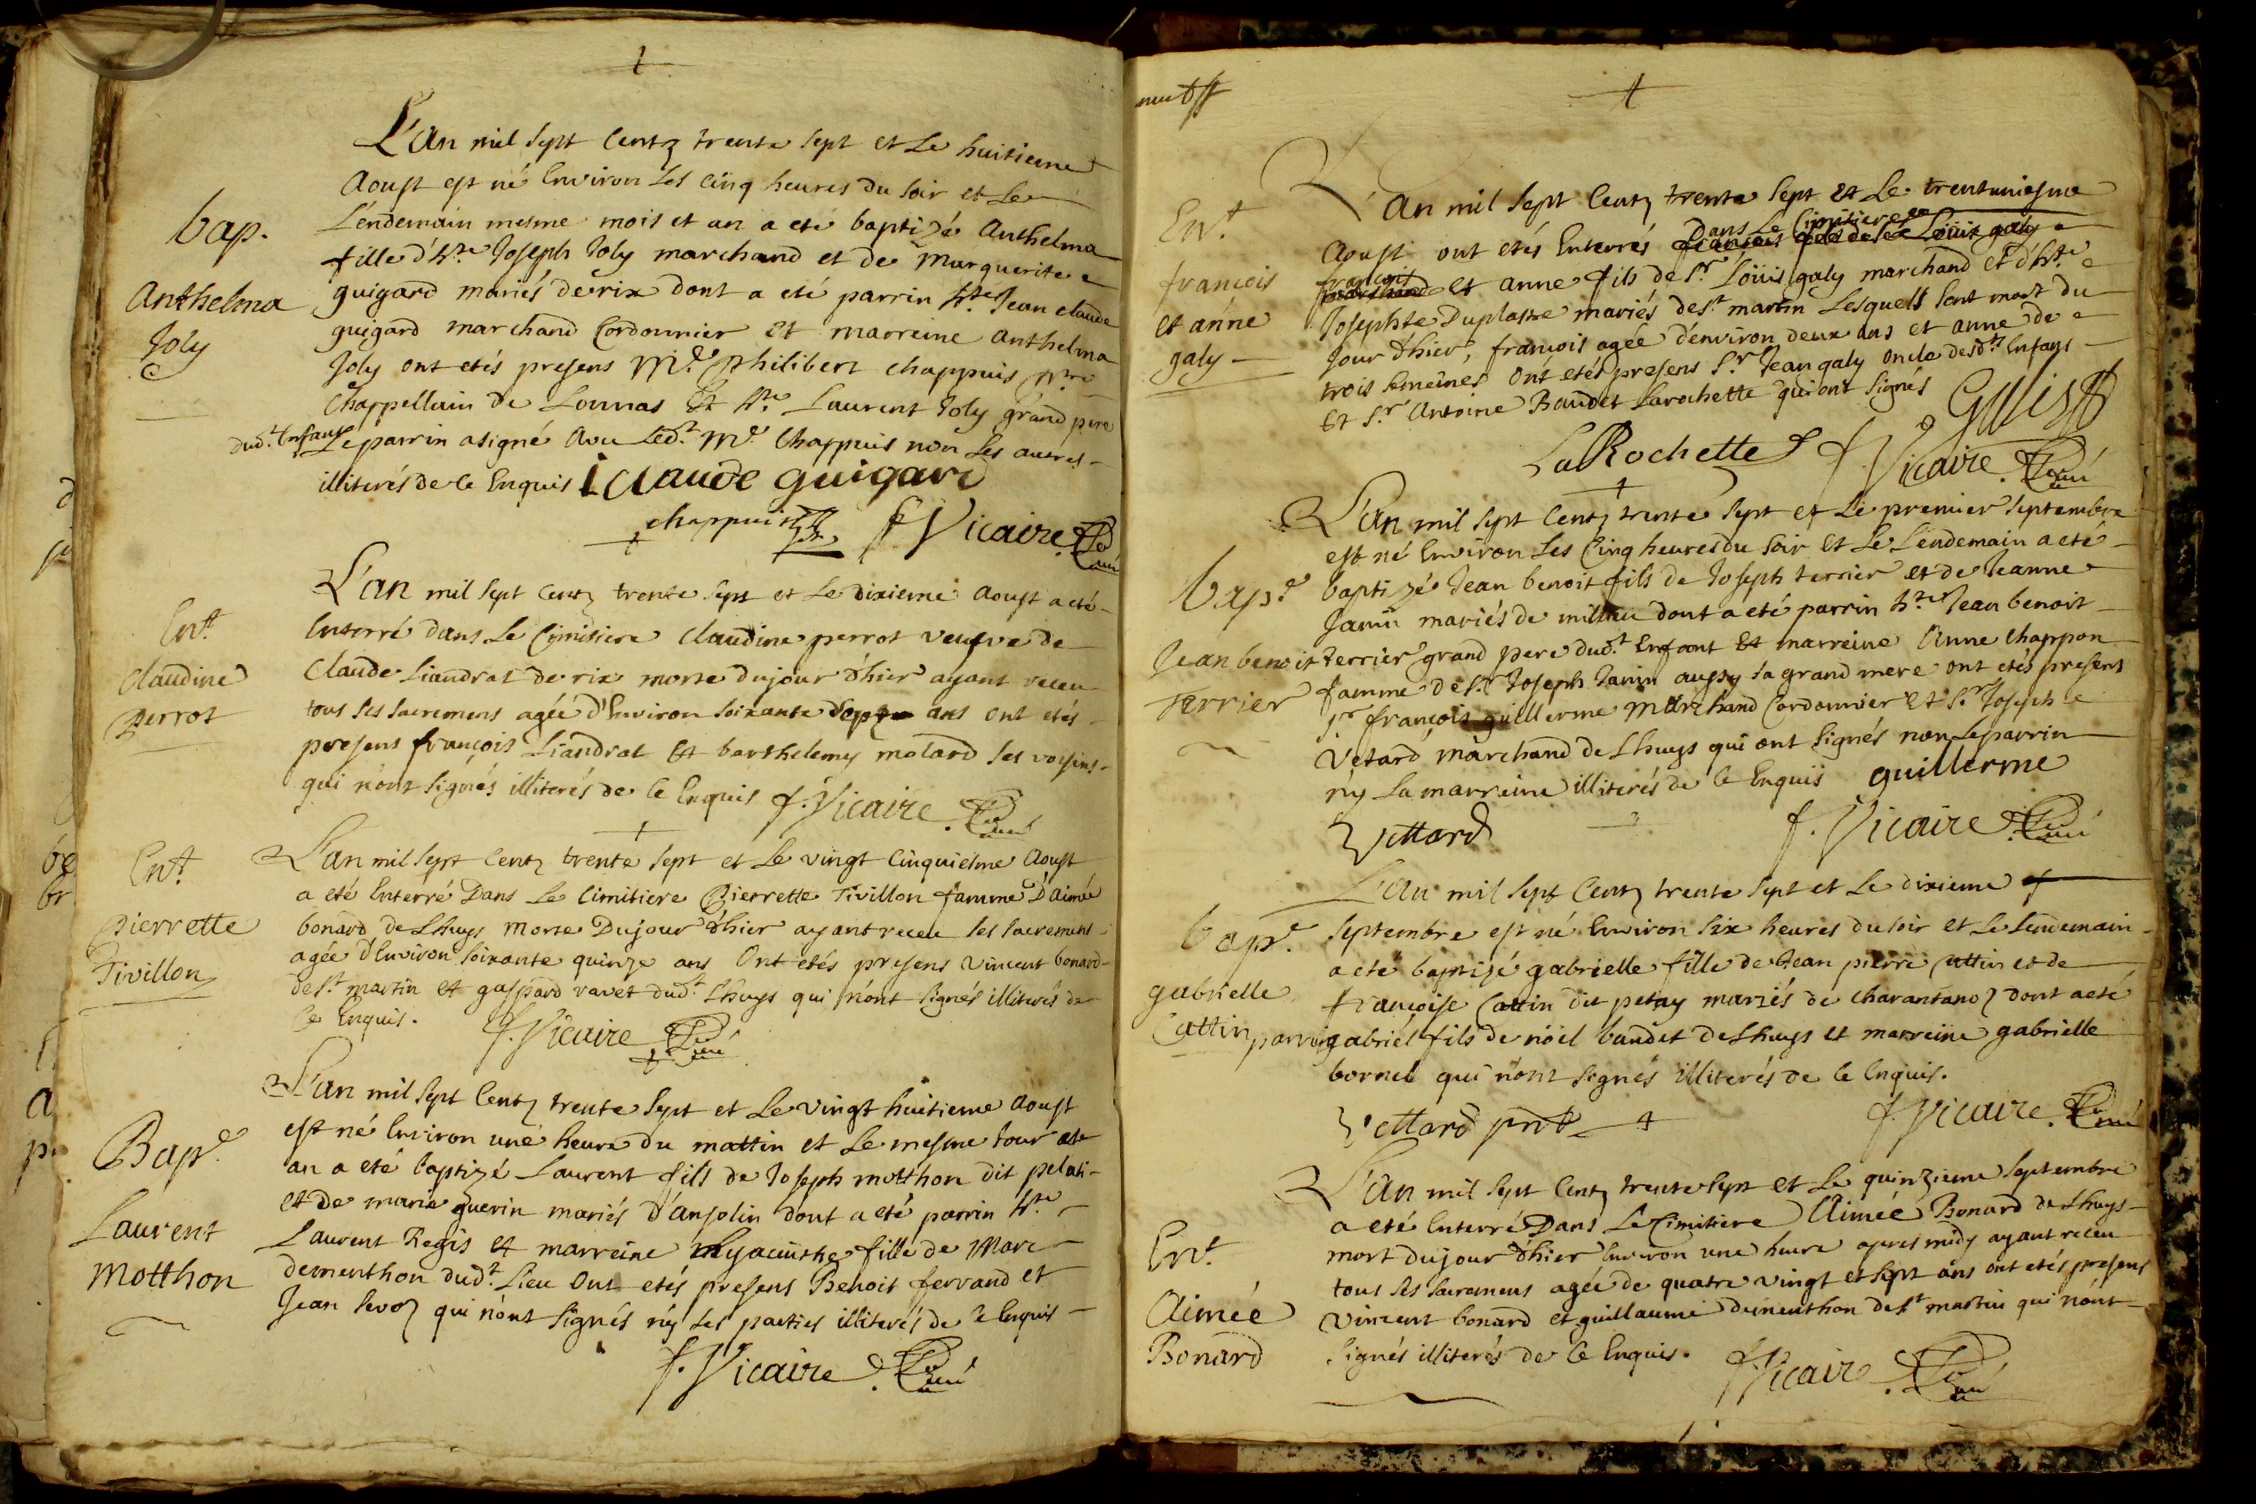 L'an mil sept centz trente sept et le huitieme
Aoust est né Environ les cinq heures du soir et le
bap.
L'endemain mesme mois et an a eté baptizé Anthelma
fille d'hte Joseph Joly marchand et de Marguerite
Anthelma
guigard mariés de rix dont a eté parrin hte Jean claude
Joly
guigard marchand Cordonnier et marreine Anthelma
Joly ont etés presens Mre philibert chappuis ptre
Chappellain de Lonnas Et hte Laurent Joly grand pere
dudt Enfant Le parrin a signé avec Ledt Mre Chappuis non les autres
illiterés de ce Enquis J Claude guigard
chappuis ptre f Vicaire Curé
L'an mil sept centz trente sept et Le dixieme Aoust a eté
Ent
Enterré dans Le Cimitiere Claudine perrot veufve de
Claudine
Claude Liandrat de rix morte du jour d'hier ayant receu
perrot
tous ses sacremens agée d'Environ soixante dept ans ont etés
presens françois Liandrat Et barthelemy molard ses voysins
qui n'ont signés illiterés de ce Enquis f. Vicaire Curé
L'an mil sept centz trente sept et Le vingt cinquiesme Aoust
Ent
a eté Enterré Dans Le Cimitiere Pierrette Tivillon famme D'aimé
pierrette
bonard de Lhuys Morte Du jour d'hier ayant receu ses sacremens
Tivillon
agée d'Environ soixante quinze ans Ont etés presens Vincent bonard
de St martin et gaspard ravet dudt Lhuys qui n'ont signés illiterés de
Ce Enquis. f. Vicaire Curé
L'an mil sept centz trente sept et Le vingt huitieme Aoust
est né Environ une heure du mattin et Le mesme Jour et
Bape
an a eté baptizé Laurent fils de Joseph motthon dit pelati
et de marie guerin mariés d'ansolin dont a eté parrin hte
Laurent
Laurent Regis et marreine hyacinthe fille de Marc
Motthon
dementhon dudt Lieu Ont etés presens Benoit ferrand et
Jean sevoz qui n'ont signés ny Les parties illiterés de ce Enquis
f. Vicaire Curé
L'an mil sept centz trente sept et Le trentuniesme
Ent
Dans Le Cimitiere
Aoust ont etés Enterrés françois fils de sr Loüis galy
françois
françois
marchand et anne fils de Sr Loüis galy marchand et d'hte
et anne
Josephte Duplastre mariés de St martin Lesquells sont mort du
galy
Jour d'hier, françois agée d'environ deux ans et anne de
trois semeines Ont etés presens Sr Jean galy oncle desdts Enfans
Et Sr Antoine Baudet Larochette qui ont signés Galis
LaRochette f Vicaire Curé
L'an mil sept centz trente sept et Le premier septembre
est né Environ les Cinq heures du soir et Le Lendemain a eté
Bape
baptizé Jean benoit fils de Joseph terrier et de Jeanne
Janin mariés de millieu dont a eté parrin hte Jean benoit
Jean benoit
terrier grand pere dudt Enfant Et marreine Anne Chappon
terrier
famme de Sr Joseph Janin aussy sa grand mere ont etés presens
Sr françois guillerme Marchand Cordonnier et Sr Joseph
Vetard marchand de Lhuys qui ont signés non Le parrin
ny La marreine illiterés de Ce Enquis guillerme
Vettard f. Vicaire Curé
L'an mil sept centz trente sept et Le dixieme
bape
septembre est né Environ six heures du soir et Le Lendemain
a eté baptizé gabrielle fille de Jean pierre Cattin et de
gabrielle
françoise Cattin dit petay mariés de Charantanoz dont a eté
Cattin
parrin gabriel fils de noël baudet de Lhuys et marreine gabrielle
bornel qui n'ont signés illiterés de ce Enquis.
Vettard pnt f. Vicaire Curé
L'an mil sept centz trente sept et Le quinzieme septembre
a eté Enterré Dans Le Cimitiere Aimée Bonard de Lhuys
Ent
mort du jour d'hier Environ une heure apres midy ayant receu
tous ses sacremens agée de quatre vingt et sept ans ont etés presens
Aimée
Vincent bonard et guillaume dementhon de St martin qui n'ont
Bonard
signés illiterés de Ce Enquis. f. Vicaire Curé